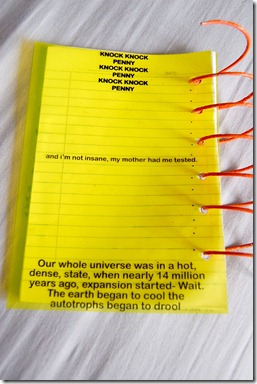 KNOCK KNOCK
PENNY
KNOCK KNOCK
PENNY
KNOCK KNOCK
PENNY
and i'm not insane, my mother had me tested.
Our whole universe was in a hot,
dense, state, when nearly 14 million
years ago, expansion started- Wait.
The earth began to cool the
autotrophs began to drool